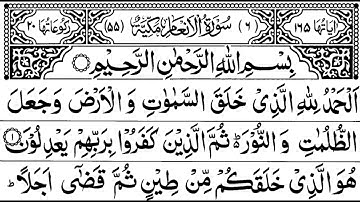 اٰیَاتُهَا ۱۶۵ (۶) سُوْرَةُ الْاَنْعَامِ مَکِّیَّةٌ (۵۵) رُکُوْعَاتُهَا ۲۰
بِسْمِ اللّٰهِ الرَّحْمٰنِ الرَّحِیْمِ
اَلْحَمْدُ لِلّٰهِ الَّذِیْ خَلَقَ السَّمٰوٰتِ وَ الْاَرْضَ وَ جَعَلَ
الظُّلُمٰتِ وَ النُّوْرَ۬ؕ ثُمَّ الَّذِیْنَ كَفَرُوْا بِرَبِّهِمْ یَعْدِلُوْنَ ۱
هُوَ الَّذِیْ خَلَقَكُمْ مِّنْ طِیْنٍ ثُمَّ قَضٰۤی اَجَلًا ؕ